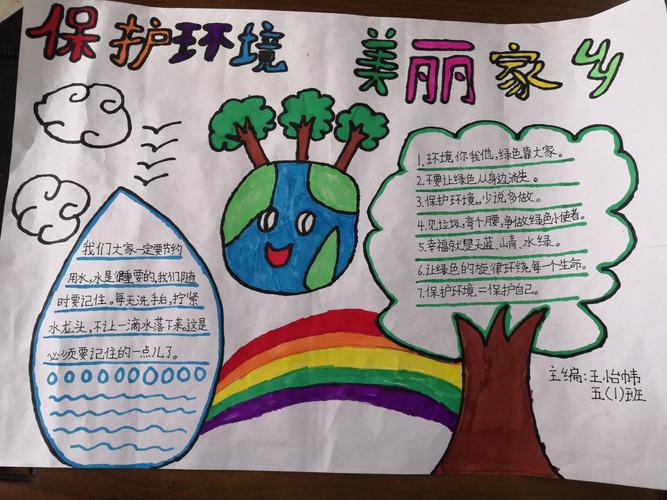 保护环境 美丽家乡
我们大家一定要节约
用水,水是很重要的,我们随
时要记住。每天洗手后,拧紧
水龙头,不让一滴水落下来。这是
必须要记住的一点儿了。
1.环境你我他,绿色靠大家。
2.不要让绿色从身边流失。
3.保护环境,少说多做。
4.见垃圾,弯个腰,争做绿色小使者。
5.幸福就是天蓝、山青、水绿。
6.让绿色的旋律环绕每一个生命。
7.保护环境=保护自己。
主编:王怡帏
五(1)班